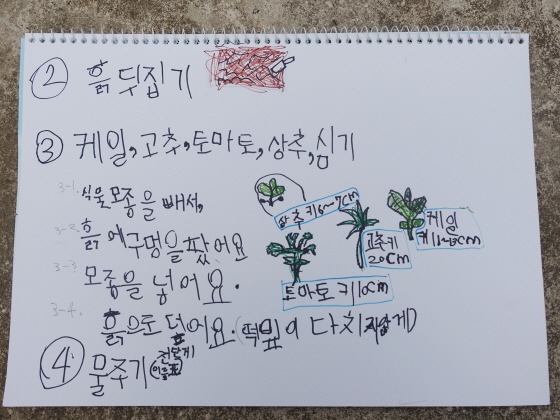 ② 흙 뒷집기
③ 케일,고추,토마토,상추,심기
3-1. 식물모종을 빼서,
3-2. 흙에 구멍을 팠어요
3-3 모종을 넣어요.
3-4. 흙으로 덮어요.(떡잎이 다치지않게)
상추 키6~7cm
고추키 20cm
케일 키11~13cm
토마토 키10cm
④ 물주기